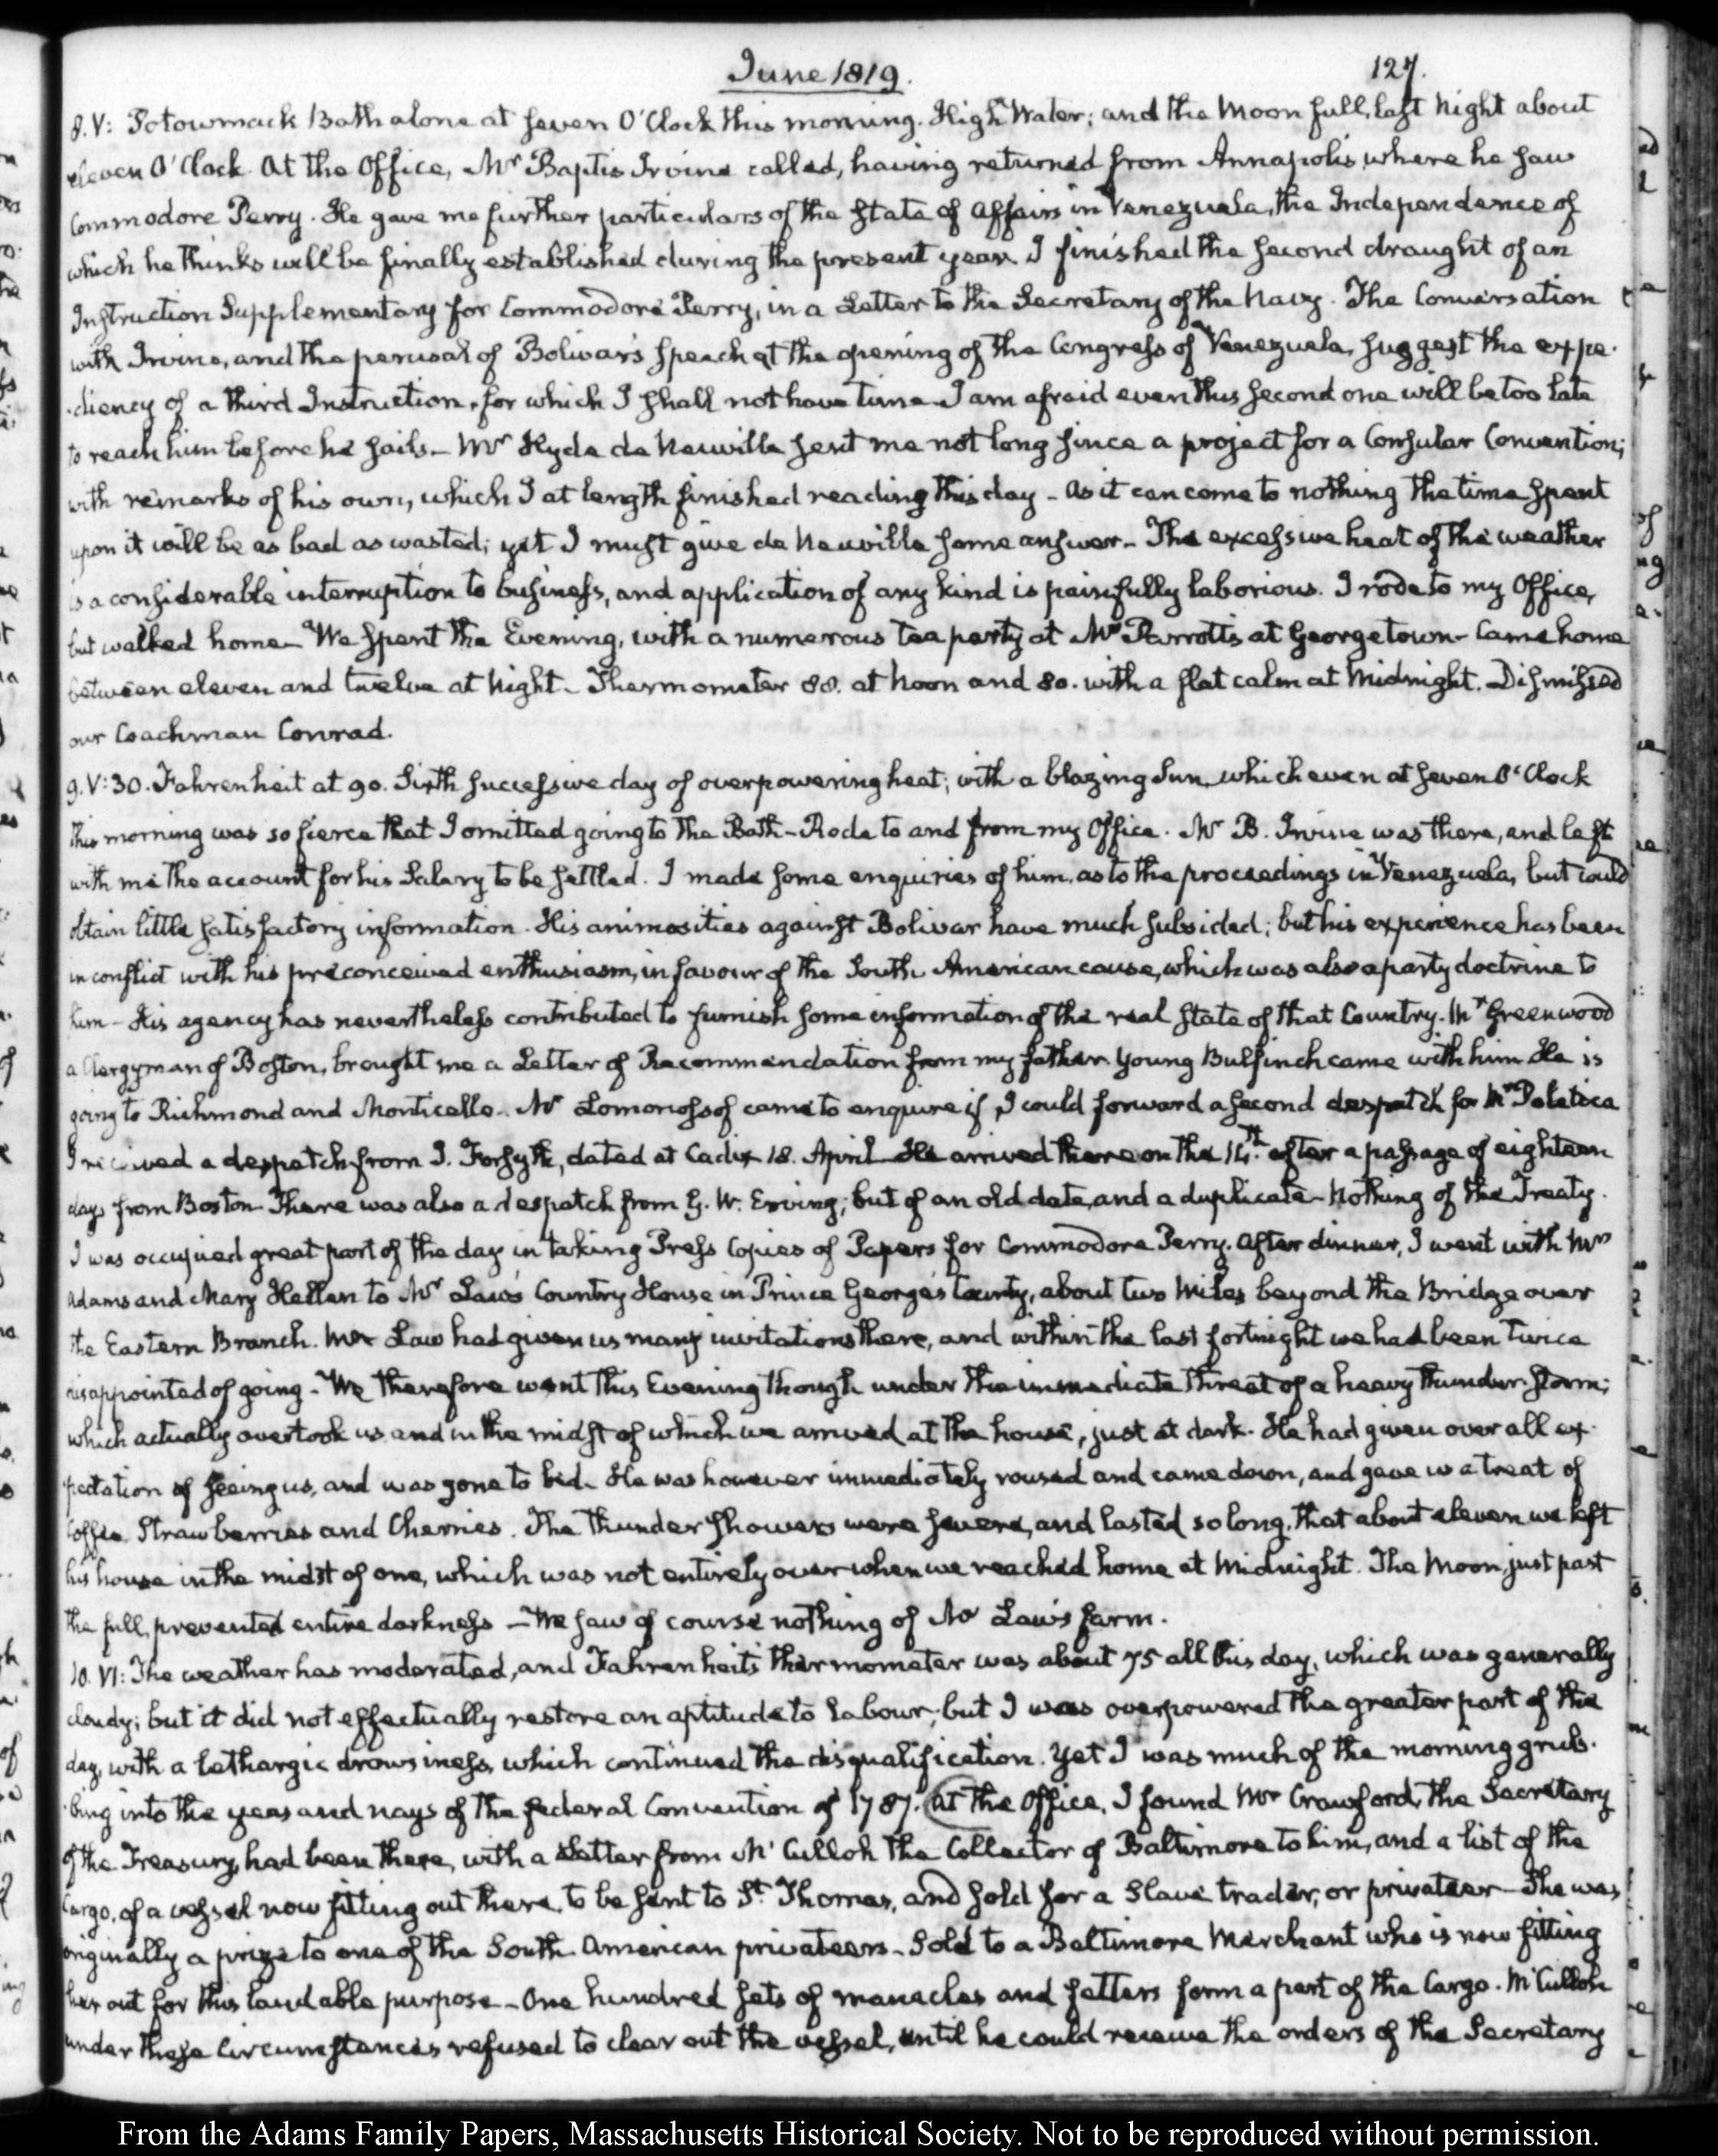 June 1819.
127.
8. V: Potowmack Bath alone at seven O'Clock this morning. High Water; and the Moon full, last Night about
eleven O'Clock. At the Office, Mr Baptis Irvine called, having returned from Annapolis, where he saw
Commodore Perry. He gave me further particulars of the state of affairs in Venezuela, the Independence of
which he thinks will be finally established during the present year. I finished the second draught of an
Instruction Supplementary for Commodore Perry, in a Letter to the Secretary of the Navy. The Conversation
with Irvine, and the perusal of Bolivar's speech at the opening of the Congress of Venezuela, suggest the expe-
-diency of a third Instruction, for which I shall not have time. I am afraid even this second one will be too late
to reach him before he sails. Mr Hyde de Neuville sent me not long since a project for a Consular Convention;
with remarks of his own, which I at length finished reading this day - As it can come to nothing the time spent
upon it will be as bad as wasted; yet I must give de Neuville some answer - The excessive heat of the weather
is a considerable interruption to business, and application of any kind is painfully laborious. I rode to my Office,
but walked home - We spent the Evening, with a numerous tea party at Mrs Parrott's at Georgetown - Came home
between eleven and twelve at Night. Thermometer 88. at Noon and 80. with a flat calm at Midnight. Dismissed
our Coachman Conrad.
9. V:30. Fahrenheit at 90. Sixth successive day of overpowering heat; with a blazing Sun, which even at seven O'Clock
this morning was so fierce that I omitted going to the Bath - Rode to and from my Office. Mr B. Irvine was there, and left
with me the account for his Salary to be settled. I made some enquiries of him, as to the proceedings in Venezuela, but could
obtain little satisfactory information. His animosities against Bolivar have much subsided; but his experience has been
in conflict with his preconceived enthusiasm, in favour of the South American cause, which was also a party doctrine to
him - His agency has nevertheless contributed to furnish some information of the real state of that Country. Mr Greenwood
a Clergyman of Boston, brought me a Letter of Recommendation from my father. Young Bulfinch came with him. He is
going to Richmond and Monticello - Mr Lomonossof came to enquire if I could forward a second despatch for Mr Poletica
I received a despatch from J. Forsyth, dated at Cadiz 18. April. He arrived there on the 14th after a passage of eighteen
days from Boston. There was also a despatch from G. W. Erving; but of an old date, and a duplicate - Nothing of the Treaty.
I was occupied great part of the day in taking Press Copies of Papers for Commodore Perry. After dinner, I went with Mrs
Adams and Mary Hellen to Mr Law's Country House in Prince George's County, about two Miles beyond the Bridge over
the Eastern Branch. Mr Law had given us many invitations there, and within the last fortnight we had been twice
disappointed of going - We therefore went this Evening though under the immediate threat of a heavy thunder-storm;
which actually overtook us, and in the midst of which we arrived at the house, just at dark. He had given over all ex-
pectation of seeing us, and was gone to bed. He was however immediately roused and came down, and gave us a treat of
Coffee. Strawberries and Cherries. The thunder showers were severe, and lasted so long, that about eleven we left
his house in the midst of one, which was not entirely over when we reached home at Midnight. The Moon, just past
the full, prevented entire darkness - We saw of course nothing of Mr Law's farm.
10. VI: The weather has moderated, and Fahrenheit's thermometer was about 75 all this day, which was generally
cloudy; but it did not effectually restore an aptitude to labour; but I was overpowered the greater part of the
day, with a lethargic drowsiness, which continued the disqualification. Yet I was much of the morning grub-
-bing into the yeas and nays of the federal Convention of 1787. At the Office, I found Mr Crawford, the Secretary
of the Treasury, had been there, with a Letter from McCulloh the Collector of Baltimore to him, and a list of the
Cargo, of a vessel now fitting out there, to be sent to St. Thomas, and sold for a Slave trader, or privateer - She was
originally a prize to one of the South American privateers - Sold to a Baltimore Merchant who is now fitting
her out for this laudable purpose - One hundred sets of manacles and fetters form a part of the Cargo. McCulloh
under these Circumstances refused to clear out the vessel, until he could receive the orders of the Secretary
From the Adams Family Papers, Massachusetts Historical Society. Not to be reproduced without permission.